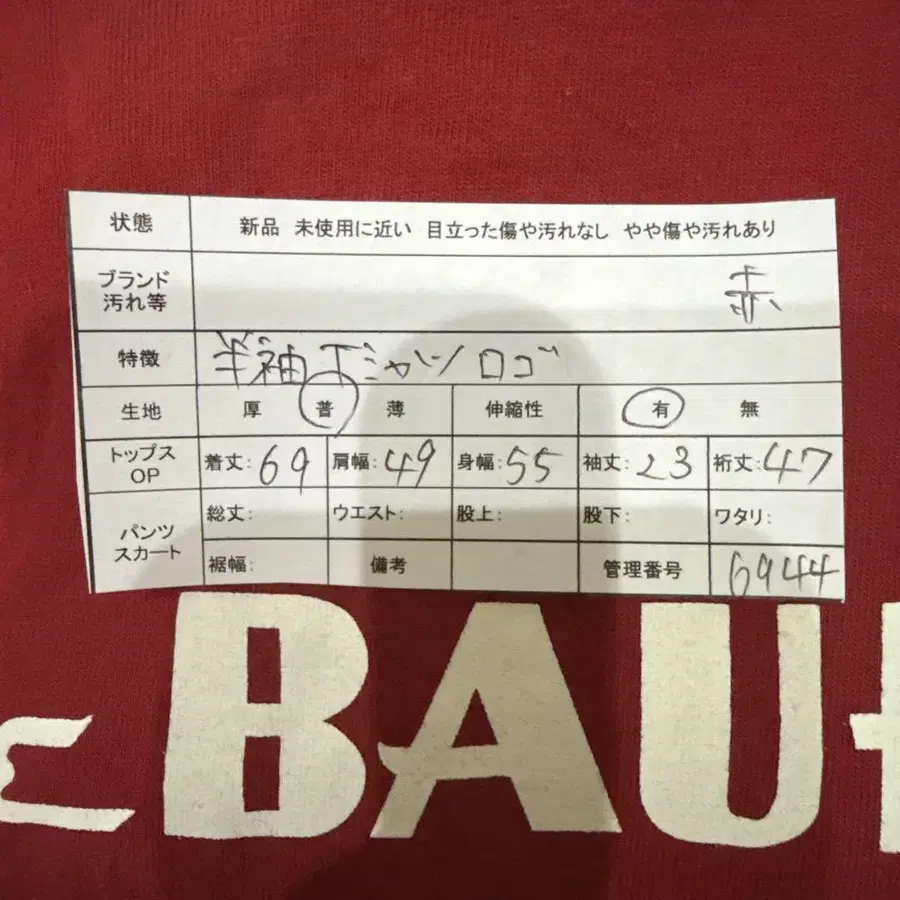 状態 新品 未使用に近い 目立った傷や汚れなし やや傷や汚れあり
ブランド
汚れ等 赤
特徴 半袖Tシャツ ロゴ
生地 厚 普 薄 伸縮性 有 無
トップス
OP 着丈:69 肩幅:49 身幅:55 袖丈:23 裄丈:47
パンツ
スカート 総丈: ウエスト: 股上: 股下: ワタリ:
裾幅: 備考 管理番号 6944
BAU